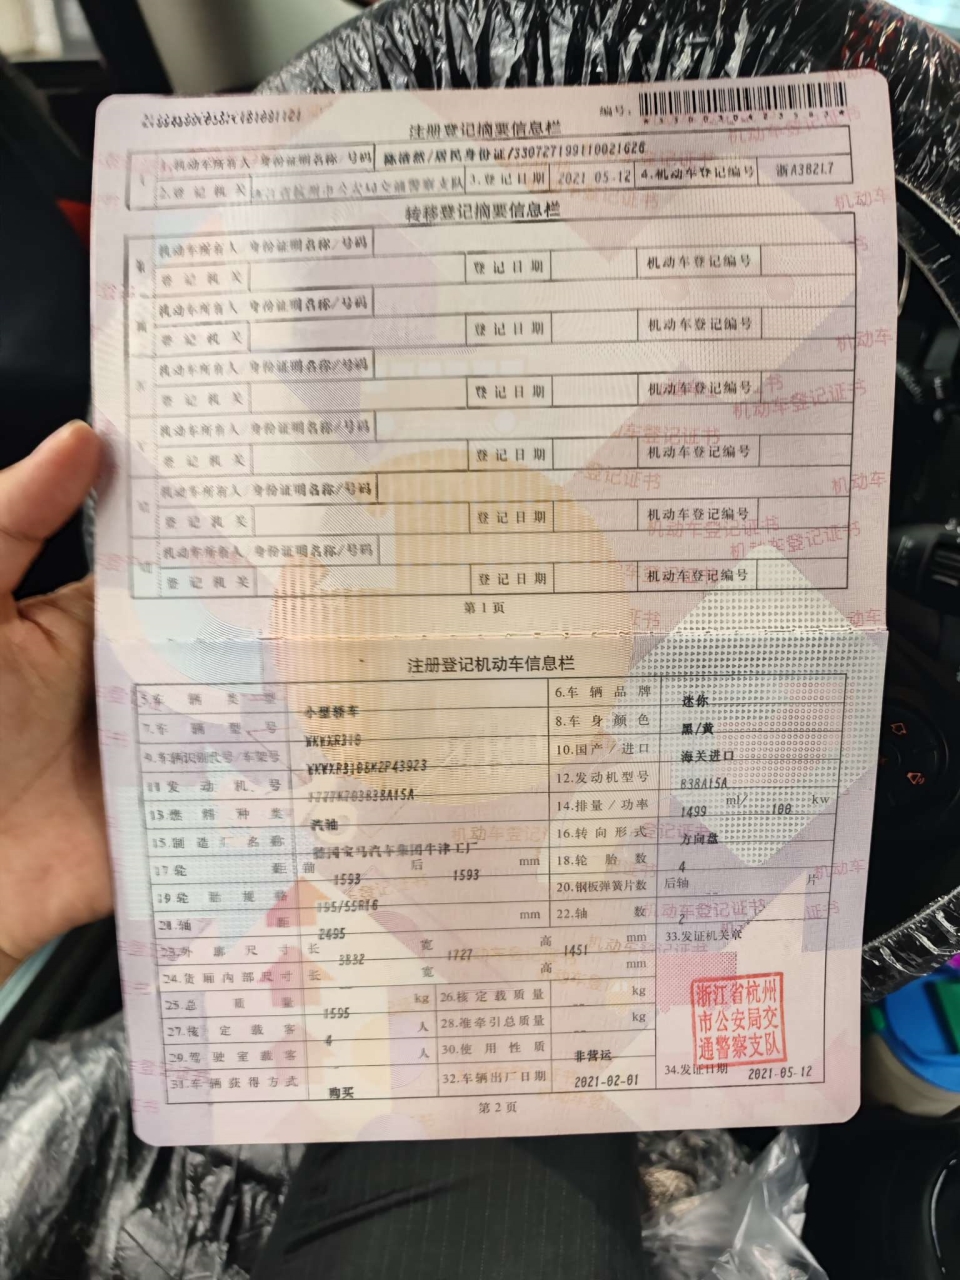 编号:
注册登记摘要信息栏
1.机动车所有人/身份证明名称/号码 陈浩然/居民身份证/330727199110021626
2.登记机关 浙江省杭州市公安局交通警察支队 3.登记日期 2021-05-12 4.机动车登记编号 浙A3B2L7
转移登记摘要信息栏
机动车所有人/身份证明名称/号码
登记机关 登记日期 机动车登记编号
机动车所有人/身份证明名称/号码
登记机关 登记日期 机动车登记编号
机动车所有人/身份证明名称/号码
登记机关 登记日期 机动车登记编号
机动车所有人/身份证明名称/号码
登记机关 登记日期 机动车登记编号
机动车所有人/身份证明名称/号码
登记机关 登记日期 机动车登记编号
机动车所有人/身份证明名称/号码
登记机关 登记日期 机动车登记编号
第1页
注册登记机动车信息栏
5.车辆类型 小型轿车 6.车辆品牌 迷你
7.车辆型号 WMWXR310 8.车身颜色 黑/黄
9.车辆识别代号/车架号 10.国产/进口 海关进口
11.发动机号 12.发动机型号 B38A15A
13.燃料种类 汽油 14.排量/功率 1499 ml/ 100 kw
15.制造厂名称 德国宝马汽车集团牛津工厂 16.转向形式 方向盘
17.轮距 前 1593 后 1593 mm 18.轮胎数 4
19.轮胎规格 195/55R16 20.钢板弹簧片数 后轴 -- 片
21.轴距 2495 mm 22.轴数 2
23.外廓尺寸 长 3832 宽 1727 高 1451 mm 33.发证机关章
24.货厢内部尺寸 长 -- 宽 -- 高 -- mm
25.总质量 1595 kg 26.核定载质量 -- kg
27.核定载客 4 人 28.准牵引总质量 -- kg
29.驾驶室载客 -- 人 30.使用性质 非营运
31.车辆获得方式 购买 32.车辆出厂日期 2021-02-01 34.发证日期 2021-05-12
浙江省杭州
市公安局交
通警察支队
第2页